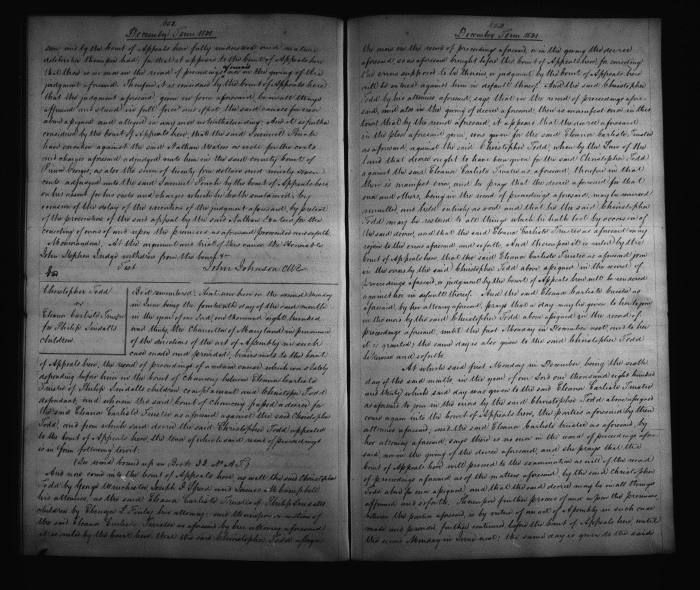 December Term 1831
seen, and by the Court of Appeals here fully understood and mature
deliberation thereupon had, for that it appears to the Court of Appeals here
that there is no error in the record of proceedings aforesaid or in the giving of the
judgment aforesaid. Therefore it is considered by the Court of Appeals here
that the judgment aforesaid given in form aforesaid be in all things
affirmed and stand in full force and effect, the said causes for error
above assigned and alleged in any wise notwithstanding. And it is further
considered by the Court of Appeals here, that the said Samuel
have execution against the said Nathan Waters as well for the costs
and charges aforesaid adjudged unto him in the said County Court of
Prince George, as also the sum of twenty four dollars and ninety seven
cents adjudged unto the said Samuel by the Court of Appeals here
on his assent for his costs and charges which he hath sustained by
reason of the delay of the execution of the judgment aforesaid, by pretext
of the prosecution of the said appeal by the said Nathan Waters for the
correcting of errors of and upon the premises as aforesaid prosecuted and so forth
Memorandum, At the argument and trial of this cause the Honorable
John Stephen Judge withdrew from the bench &c
Test John Johnson Clk
Christopher Todd
vs
Eleanor Carlisle Trustee
for Philip Tindalls
Children
Be it remembered, that now here on the second Monday
in June being the fourteenth day of the said month
in the year of our Lord one thousand eight hundred
and thirty, the Chancellor of Maryland in pursuance
of the directions of the act of Assembly in such
case made and provided, transmits to the Court
of Appeals here, the record of proceedings of a certain cause which was lately
depending before him in the Court of Chancery between Eleanor Carlisle
Trustee of Philip Tindalls children complainant and Christopher Todd
defendant, and wherein the said Court of Chancery passed a decree for
the said Eleanor Carlisle Trustee as aforesaid against the said Christopher
Todd, and from which said decree the said Christopher Todd appealed
to the Court of Appeals here, the tenor of which said record of proceedings
is in form following to wit:
And now comes into the Court of Appeals here, as well the said Christopher
Todd by George Winchester, and
his attornies, as the said Eleanor Carlisle Trustee of Philip Tindalls
children by Ebenezer L Finley her attorney: and thereupon on motion of
the said Eleanor Carlisle Trustee as aforesaid by her attorney aforesaid
it is ruled by the Court here, that the said Christopher Todd assign
December Term 1831
the errors in the record of proceedings aforesaid, or in the giving the decree
aforesaid, so as aforesaid brought before the Court of Appeals here, for correcting
the errors supposed to be therein, or judgment by the Court of Appeals here
will be entered against him in default thereof. And the said Christopher
Todd by his attornies aforesaid, says that in the record of proceedings afore
said, and also in the giving of decree aforesaid there is manifest error in this
to wit that by the record aforesaid, it appears that the decree aforesaid
in the plea aforesaid given, was given for the said Eleanor Carlisle Trustee
as aforesaid, against the said Christopher Todd, when by the Law of the
land that decree ought to have been given for the said Christopher Todd
against the said Eleanor Carlisle Trustee as aforesaid, therefore in that
there is manifest error, and he prays that the decree aforesaid for that
error and others, being in the record of proceedings aforesaid, may be reversed
annulled and held entirely as void and that he the said Christopher
Todd may be restored to all things which he hath lost by occasion of
the said decree, and that the said Eleanor Carlisle Trustee as aforesaid may
rejoin to the errors aforesaid and so forth. And thereupon it is ruled by the
Court of Appeals here, that the said Eleanor Carlisle Trustee as aforesaid join
in the errors by the said Christopher Todd above assigned in the record of
proceedings aforesaid, or judgment by the Court of Appeals here will be rendered
against her in default thereof. And the said Eleanor Carlisle trustee as
aforesaid by her attorney aforesaid prays that a day may be given to her to join
in the errors by the said Christopher Todd above assigned in the record of
proceedings aforesaid, until the first Monday in December next, and to her
it is granted; the same day is also given to the said Christopher Todd
to hear and so forth.
At which said first Monday in December being the sixth
day of the said month in the year of our Lord one thousand eight hundred
and thirty which said day was given to the said Eleanor Carlisle Trustee
as aforesaid to join in the errors by the said Christopher Todd above assigned
come again into the Court of Appeals here, the parties aforesaid by their
attornies aforesaid; and the said Eleanor Carlisle trustee as aforesaid, by
her attorney aforesaid says there is no error in the record of proceedings afore
said, nor in the giving of the decree aforesaid, and she prays that the
Court of Appeals here will proceed to the examination as well of the record
of proceedings aforesaid as of the matters aforesaid by the said Christopher
Todd above for error assigned, and that the said decree may be in all things
affirmed and so forth. Whereupon further process of and upon the premises
between the parties aforesaid, is by virtue of an act of Assembly in such case
made and provided, further continued before the Court of Appeals here, until
the second Monday in June next; the same day is given to the said